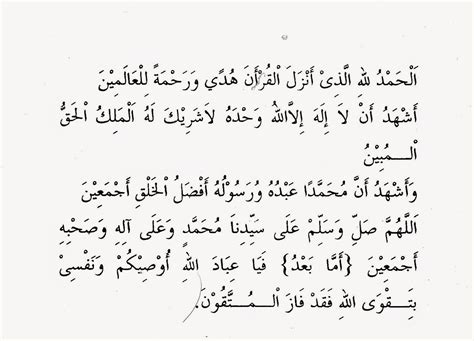 اَلْحَمْدُ لِلهِ الَّذِىْ أَنْزَلَ الْقُرْأَنَ هُدًي وَرَحْمَةً لِلْعَالَمِيْنَ
أَشْهَدُ أَنْ لاَ إِلَهَ إِلاَّاللهُ وَحْدَهُ لاَشَرِيْكَ لَهُ اْلمَلِكُ اْلحَقُّ
اْلـــمُبِيْنُ
وَأَشْهَدُ أَنَّ مُحَمَّدًا عَبْدُهُ وُرَسُوْلُهُ أَفْضَلُ الْخَلْقِ أَجْمَعِيْنَ
اَللَّهُمَّ صَلِّ وَسَلِّمْ عَلَى سَيِّدِنَا مُحَمَّدٍ وَعَلَى آلِهِ وَصَحْبِهِ
أَجْمَعِيْنَ {أَمَّا بَعْدُ} فَيَا عِبَادَ اللهِ أُوْصِيْكُمْ وَنَفْسِىْ
بِتَـــقْوَى اللهِ فَقَدْ فَازَ اْلـــمُتَّقُوْنَ.